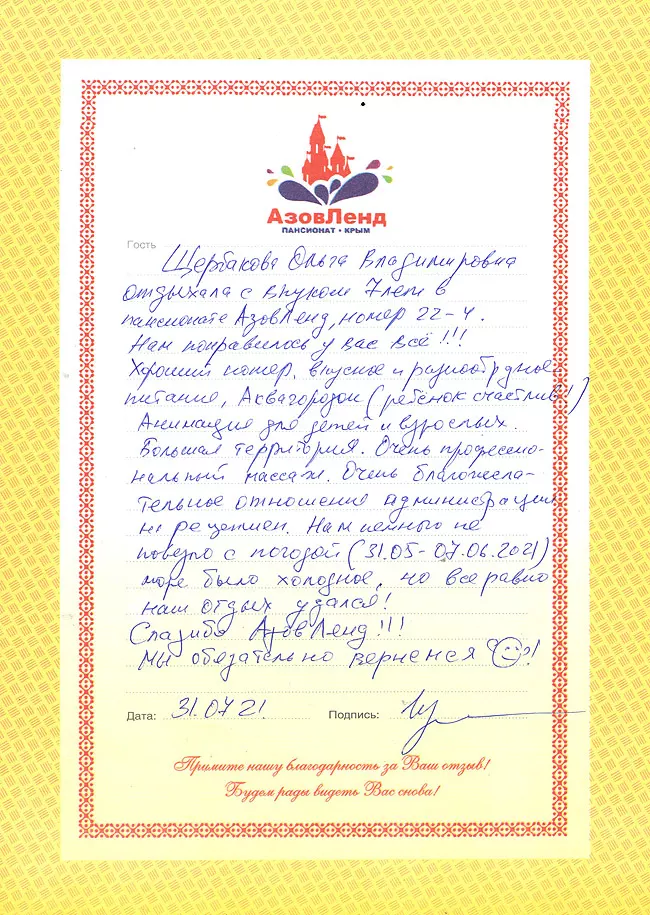 АзовЛенд
ПАНСИОНАТ • КРЫМ
Гость
Щербакова Ольга Владимировна
отдыхала с внуком 7лет в
пансионате АзовЛенд, номер 22-4.
Нам понравилось у вас всё!!!
Хороший номер, вкусное и разнообрдное
питание, Аквагородок (ребёнок счастлив!)
Анимация для детей и взрослых.
Большая территория. Очень профессио-
нальный массаж. Очень благожела-
тельное отношение администрации
на рецепшен. Нам немного не
повезло с погодой (31.05-07.06.2021)
море было холодное, но все равно
наш отдых удался!
Спасибо АзовЛенд!!!
Мы обязательно вернемся!
Дата: 31.07 21. Подпись:
Примите нашу благодарность за Ваш отзыв!
Будем рады видеть Вас снова!